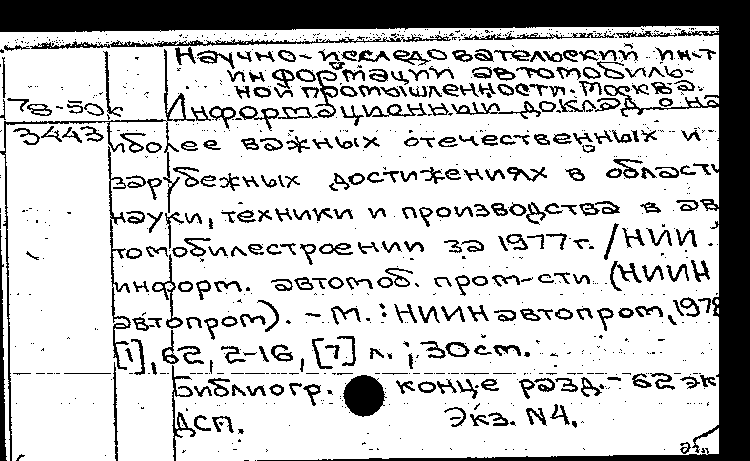 Научно-исследовательский ин-т
информации автомобиль-
ной промышленности. Москва.
78-50к Информационный доклад о на
3443 иболее важных отечественных и
зарубежных достижениях в области
науки, техники и производства в ав
томобилестроении за 1977 г. / НИИ
информ. автомоб. пром-сти (НИИН
автопром). - М. : НИИНавтопром, 1978
[1], 62, 2-16, [7] л. ; 30 см.
Библиогр. конце разд. - 62 эк
ДСП. Экз. N4.